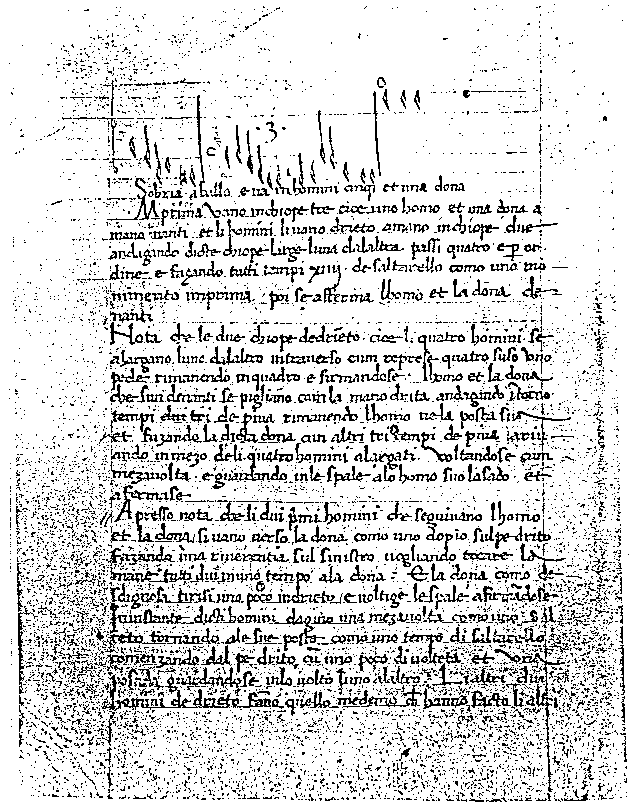 .3.
Sobria a ballo e va in homini cinqi et una dona
In prima vano in chiope tre cioe uno homo et una dona a
mana nanti et li homini li vano drieto a mano in chiope due
andagando dicte chiope large luna da laltra passi quatro e per or
dine e fazando tuti tempi xiiij de saltarello como uno mo
vimento imprima poi se afferma lhomo et la dona de
nanti
Nota che le due chiope dedrieto cioe li quatro homini se
alargano luno da laltro in traverso cum represe quatro suso uno
pede rimanendo in quadro e firmandose lhomo et la dona
che sun denanti se pigliano cum la mano drita andagando itorno
tempi dui tri de piva rimanendo lhomo ne la posta sua
et fazando la dicta dona cun altri tri tempi de piva
ando in mezo de li quatro homini alargati voltandose cum
meza volta e guardando in le spale alo homo suo lasado et
afermase
Apresso nota che li dui primi homini che seguivano lhomo
et la dona si vano verso la dona como uno dopio sul pe drito
fazando una riverentia sul sinistro vogliando tocare la
mane tuti dui in uno tempo ala dona : E la dona como de
sdignosa tirasi uno poco indrieto e voltige le spale afirmadose
dicti homini dagino una meza volta como uno
tornando ale sue posto como uno tempo di saltarello
comenzando dal pe drito cum uno poco di volteta et
posada guardandose in lo volto luno al altro : Li altri dui
homini de drieto fano quello medemo che hanno facto li altri